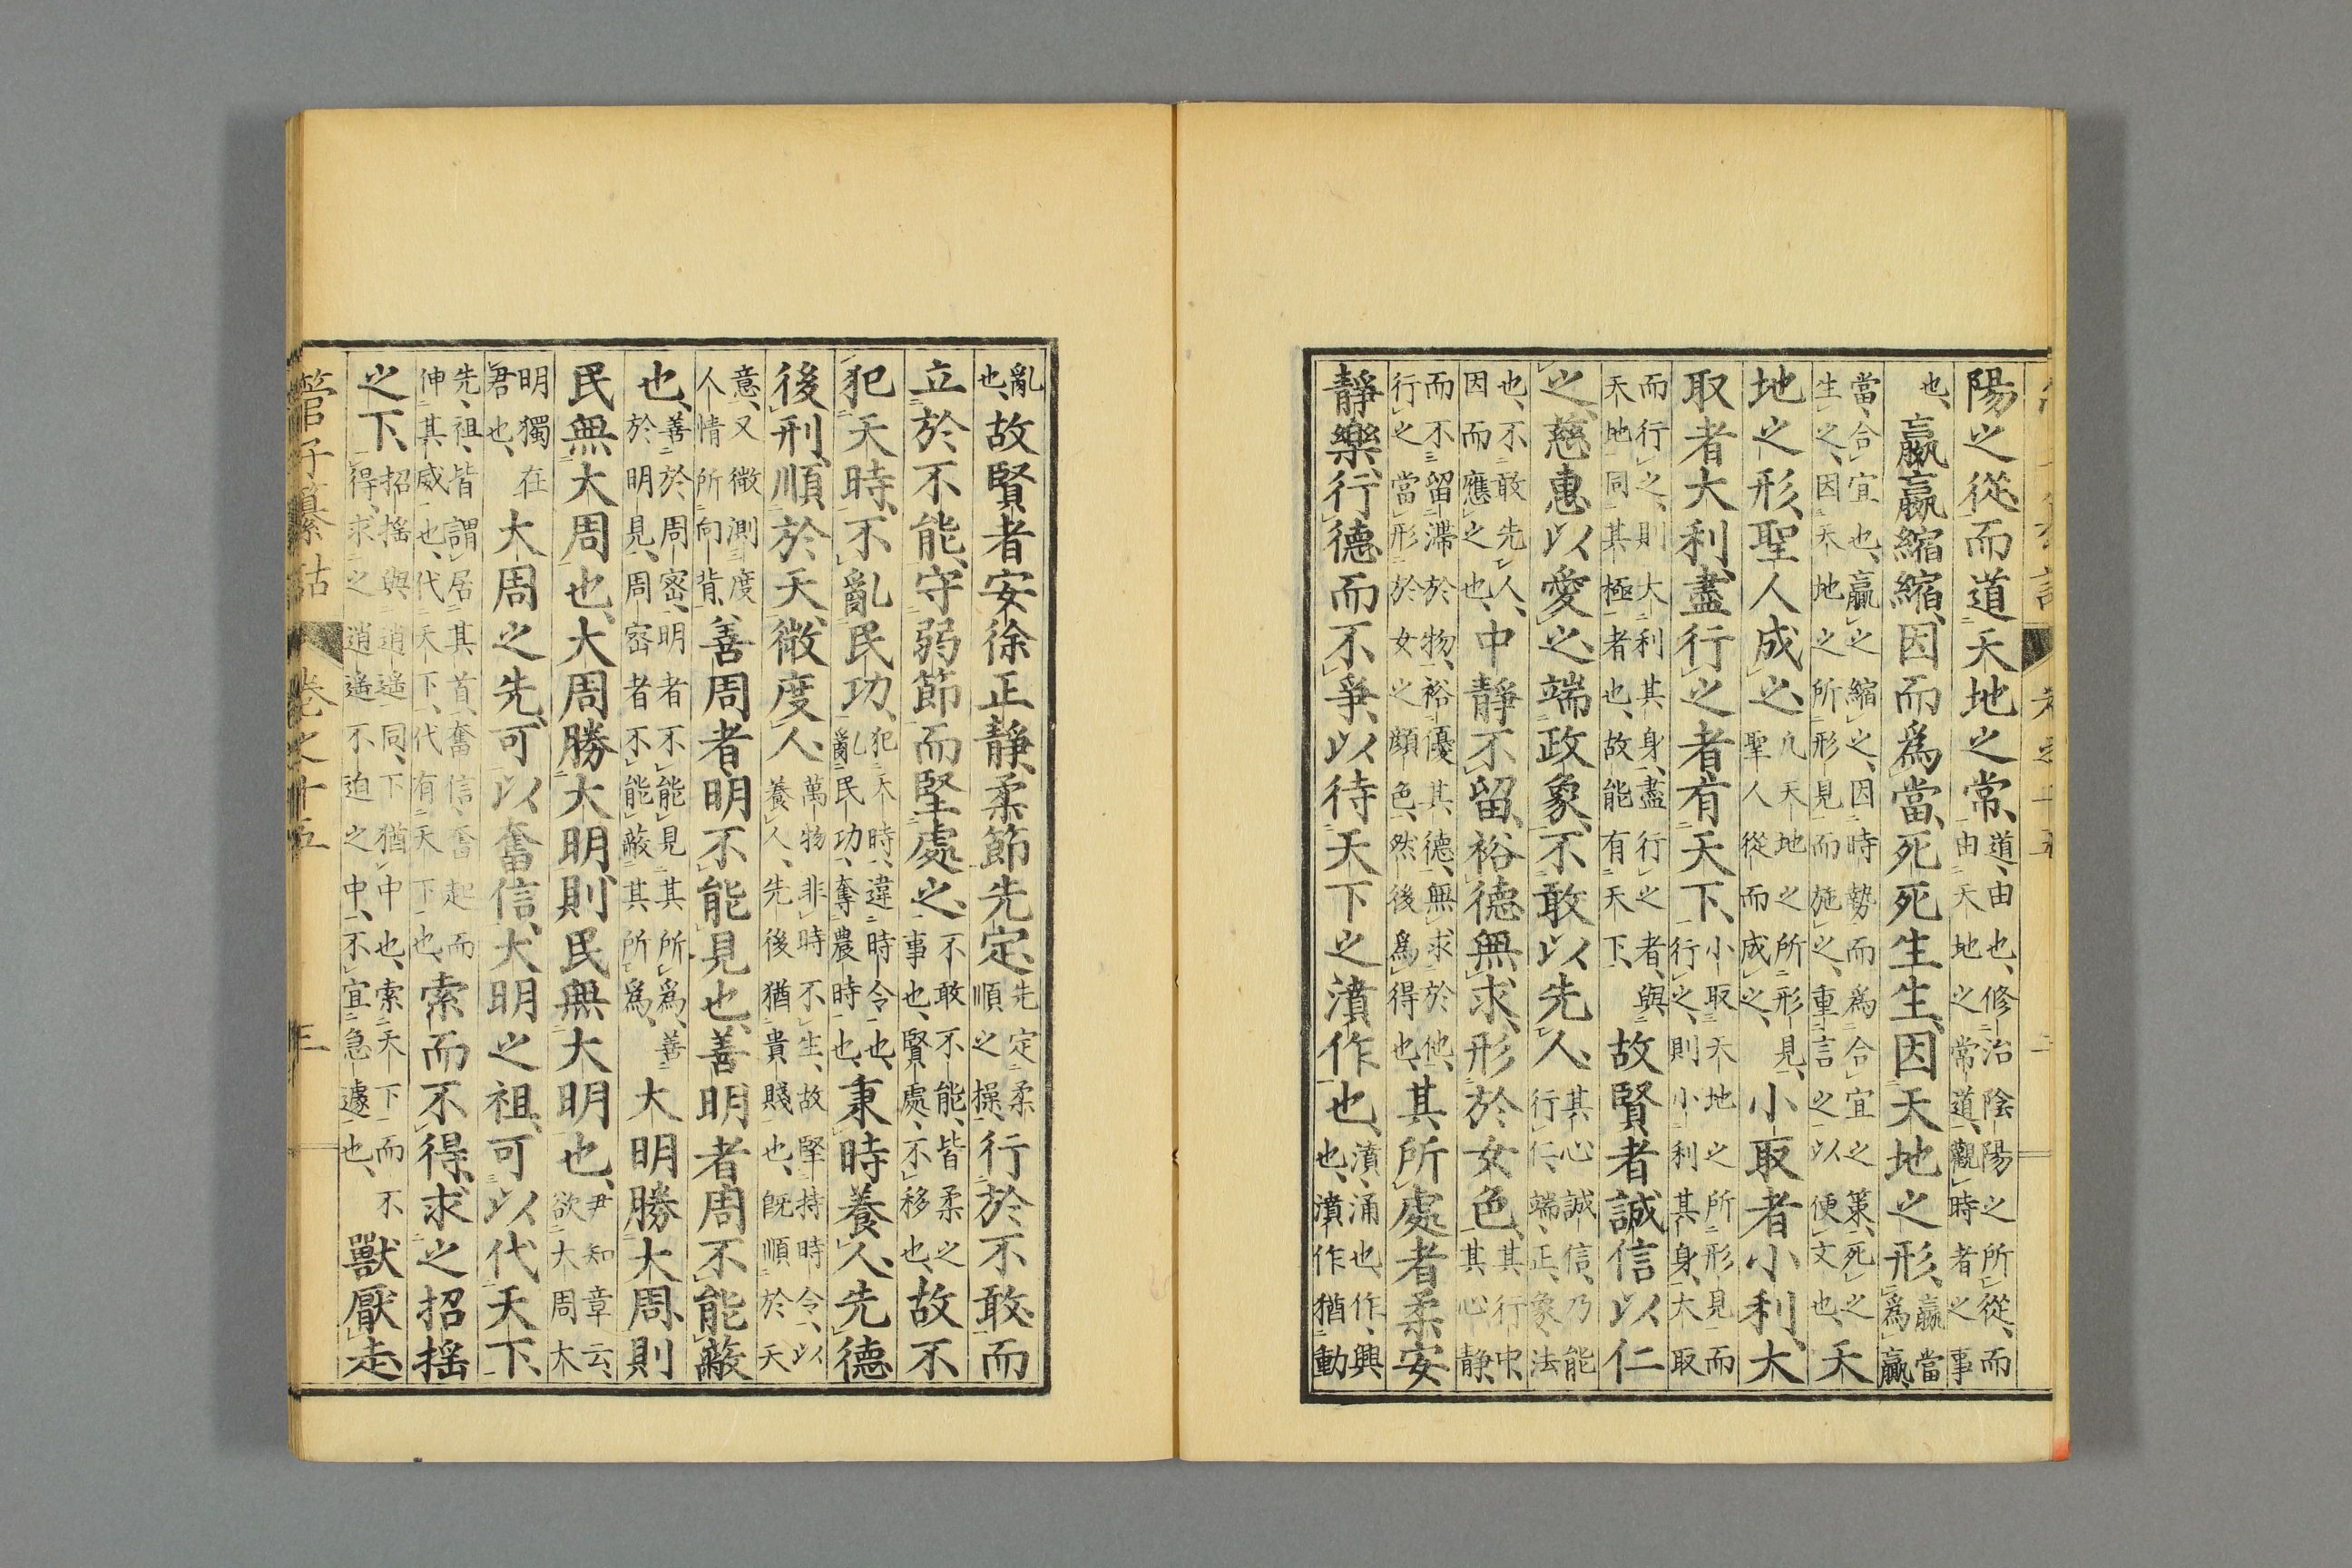 陽之從而道天地之常、道、由也、修治陰陽之所從、而由天地之常道、觀時者之事
也、嬴嬴縮縮、因而爲當、死死生生、因天地之形、嬴當爲贏、
當、合宜也、贏之縮之、因時勢而爲合宜之策、死之生之、因天地之所形見而施之、重言之以便文也、天
地之形、聖人成之、凡天地之所形見、聖人從而成之、小取者小利、大
取者大利、盡行之者有天下、小取天地之所形見而行之、則小利其身、大取
而行之、則大利其身、盡行之者、與天地同其極者也、故能有天下、故賢者誠信以仁
之、慈惠以愛之、端政象、不敢以先人、其心誠信、乃能行仁、端、正、象、法
也、不敢先人、因而應之也、中靜不留、裕德無求、形於女色、其行中、其心靜、
而不留滯於物、裕優其德、無求於他、行之當形於女之顔色、然後爲得也、其所處者柔安
靜樂、行德而不爭、以待天下之濆作也、濆、涌也、作、興也、濆作猶動
亂也、故賢者安徐正靜、柔節先定、先定柔順之操、行於不敢、而
立於不能、守弱節而堅處之、不敢不能、皆柔之事也、賢處、不移也、故不
犯天時、不亂民功、犯天時、違時令也、亂民功、奪農時也、秉時養人、先德
後刑、順於天、微度人、萬物非時不生、故堅持時令、以養人、先後猶貴賤也、旣順於天
意、又微測度人情所向背、善周者、明不能見也、善明者、周不能蔽
也、善於周密、明者不能見其所爲、善於明見、周密者不能蔽其所爲、大明勝大周、則
民無大周也、大周勝大明、則民無大明也、尹知章云、欲大周大
明獨在君也、大周之先、可以奮信、大明之祖、可以代天下、
先、祖、皆謂居其首、奮信、奮起而伸其威也、代天下、代有天下也、索而不得、求之招搖
之下、招搖與逍遙同、下猶中也、索天下而不得、求之逍遙不迫之中、不宜急遽也、獸厭走、
管子纂詁　卷之十五　三